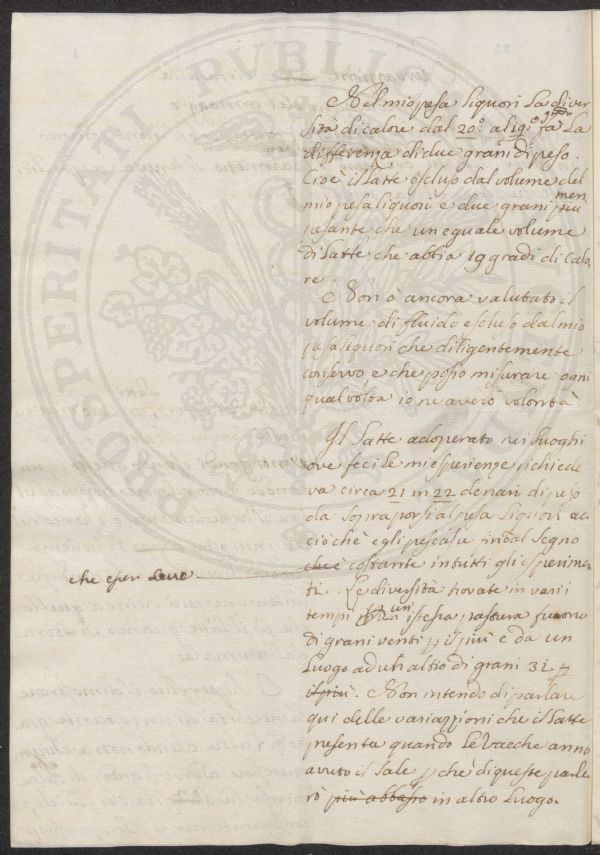 PROSPERITATI PUBLICAE
Nel mio pesa liquori la diver
sità di calore dal 20.° al 19.° fa la
differenza di due grani di peso.
Cioè il Latte escluso dal volume del
mio pesa liquori è due grani più
men
pesante che un eguale volume
di latte che abbia 19 gradi di calo
re.
Non ò ancora valutato il
volume di fluido escluso dal mio
pesa liquori che diligentemente
conservo e che posso misurare ogni
qual volta io ne averò volontà
Il Latte adoperato nei luoghi
ove feci le mie sperienze richiede
va circa 21 in 22 denari di peso
da sopraporsi al pesa liquori ac
ciò che egli pescasse sino al segno
che è costante in tutti gli esperimen
che esser deve
ti. Le diversità trovate in varii
tempi un istessa pastura furono
di grani venti p il più e da un
Luogo ad un altro di grani 32 p
il più. Non intendo di parlare
qui delle variazzioni che il latte
presenta quando le Vacche anno
avuto il sale p chè di queste parle
rò più abbasso in altro Luogo.